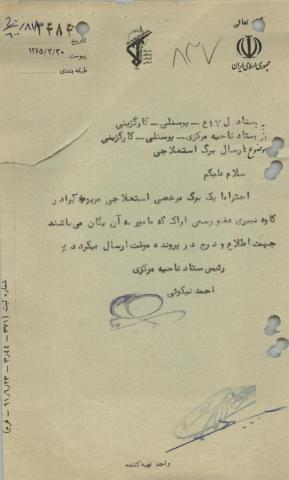 تعالی
جمهوری اسلامی ایران
۸۲۷
تاریخ ۱۳۶۵/۲/۳۰
پیوست
طبقه بندی
به ستاد ل ۱۷ ع ــ پرسنلی ــ کارگزینی
از ستاد ناحیه مرکزی ــ پرسنلی ــ کارگزینی
موضوع ارسال برگ استعلاجی
سلام علیکم
احتراما یک برگ مرخصی استعلاجی مربوط به برادر
کاوه نبیری عضو رسمی اراک که مامور به آن یگان می باشند
جهت اطلاع و درج در پرونده موقت ارسال میگردد
رئیس ستاد ناحیه مرکزی
احمد نیکوئی
واحد تهیه کننده